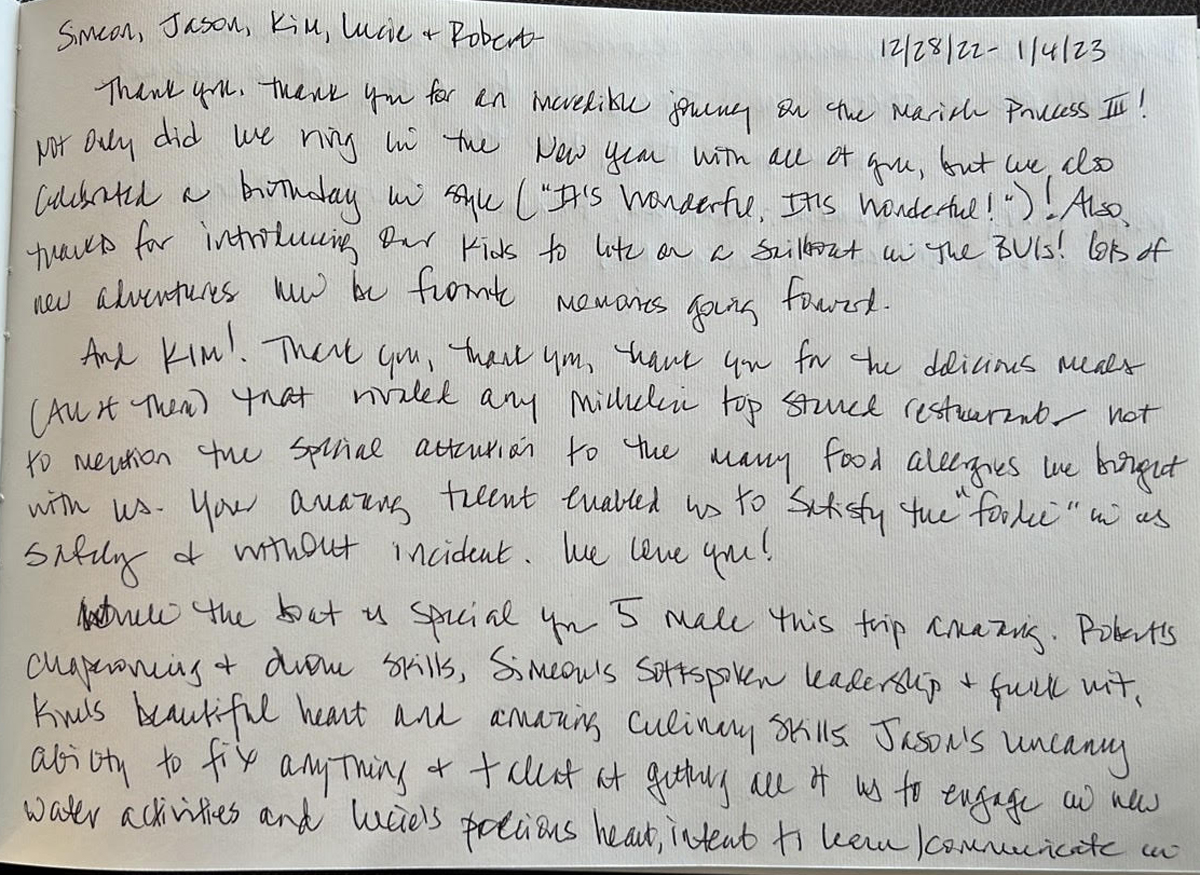 Simeon, Jason, Kim, Lucie + Robert
12/28/22 - 1/4/23
Thank you, thank you for an incredible journey on the Mariah Princess III!
Not only did we ring in the New Year with all of you, but we also
celebrated a birthday in style ("It's Wonderful, It's Wonderful!")! Also,
thanks for introducing our kids to life on a sailboat in the BVIs! Lots of
new adventures will be favorite memories going forward.
And KIM! Thank you, thank you, thank you for the delicious meals
(All of Them) that rivaled any Michelin top starred restaurant - not
to mention the special attention to the many food allergies we brought
with us. Your amazing talent enabled us to satisfy the "foodie" in us
safely & without incident. We love you!
While the boat is special you 5 made this trip amazing. Robert's
chaperoning + drone skills, Simeon's softspoken leadership + quick wit,
Kim's beautiful heart and amazing culinary skills, Jason's uncanny
ability to fix anything & talent at getting all of us to engage in new
water activities and Lucie's precious heart, intent to learn/communicate in